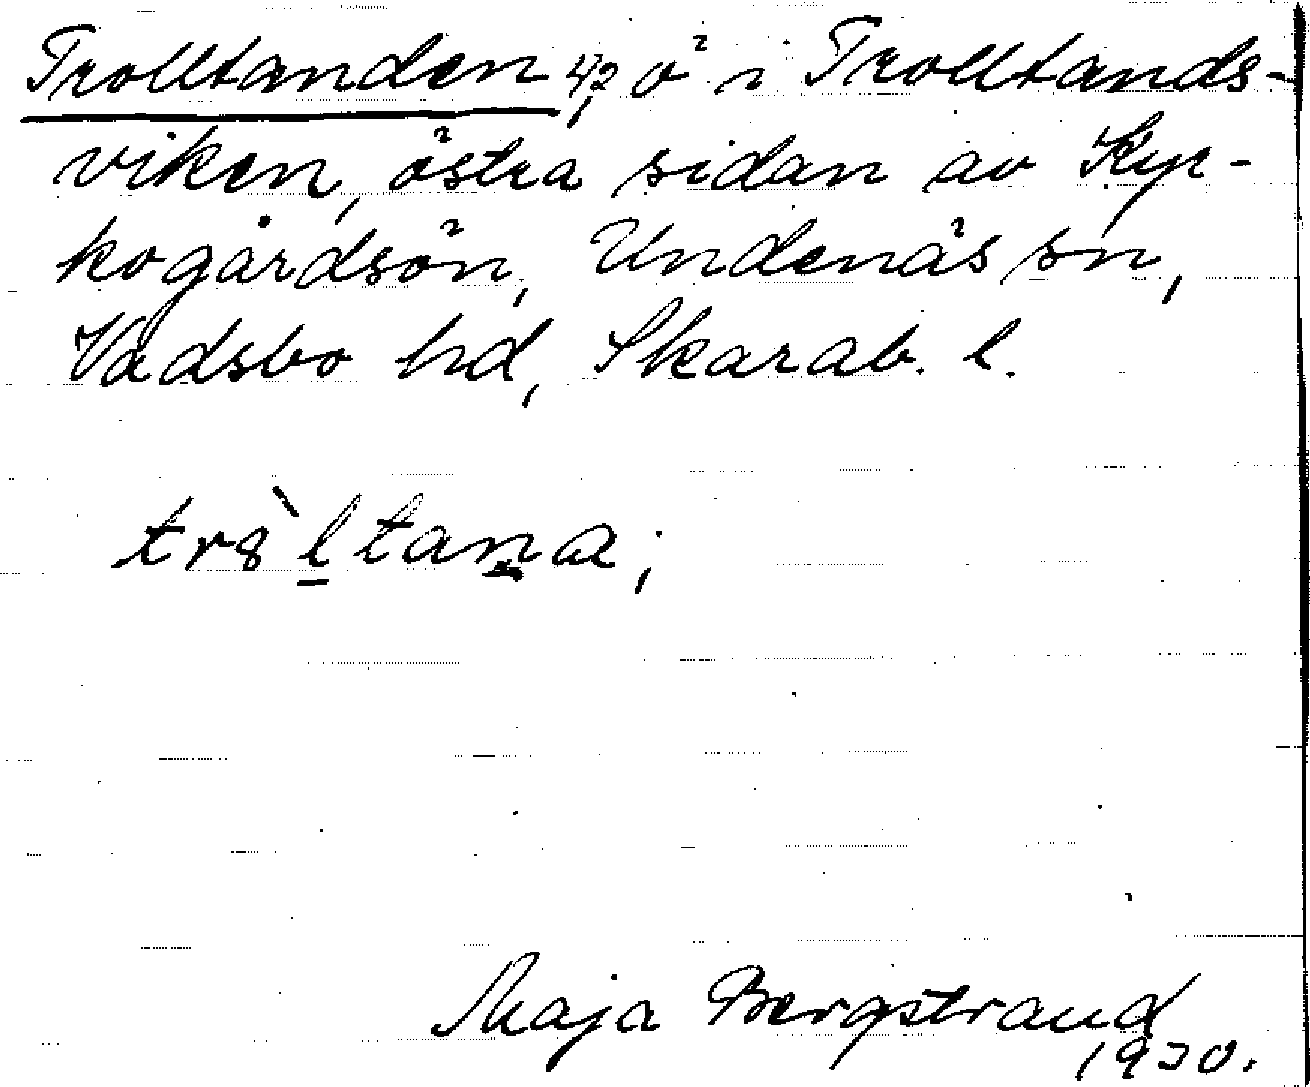 Trolltanden 4/2 ö i Trolltands-
viken, östra sidan av Kyr-
kogårdsön, Undenäs sn,
Vadsbo hd, Skarab. l.
tr8̀ltana;
Maja Bergstrand
1930.